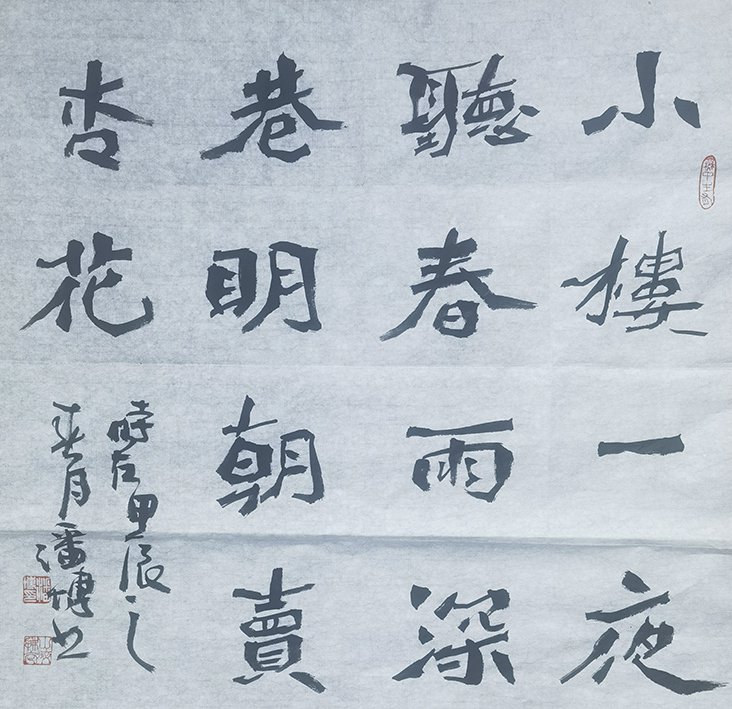 小樓一夜
聽春雨深
巷明朝賣
杏花
時在甲辰之
春月潘